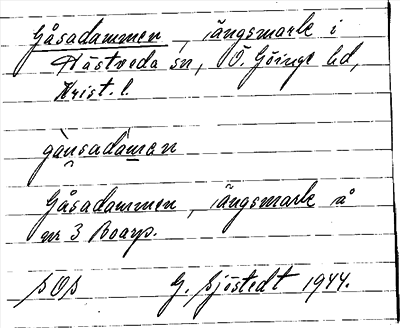 Gåsadammen, ängsmark i
Hästveda sn, Ö. Göinge hd,
Krist. l.
gåu̯sadàmen
Gåsadammen, ängsmark å
nr 3 Boarp.
SOS G. Sjöstedt 1944.